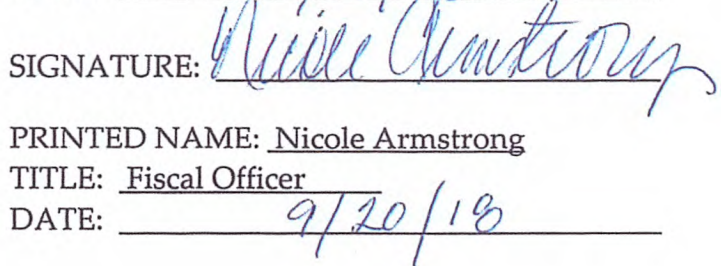 SIGNATURE: Nicole Armstrong
PRINTED NAME: Nicole Armstrong
TITLE: Fiscal Officer
DATE: 9/20/18